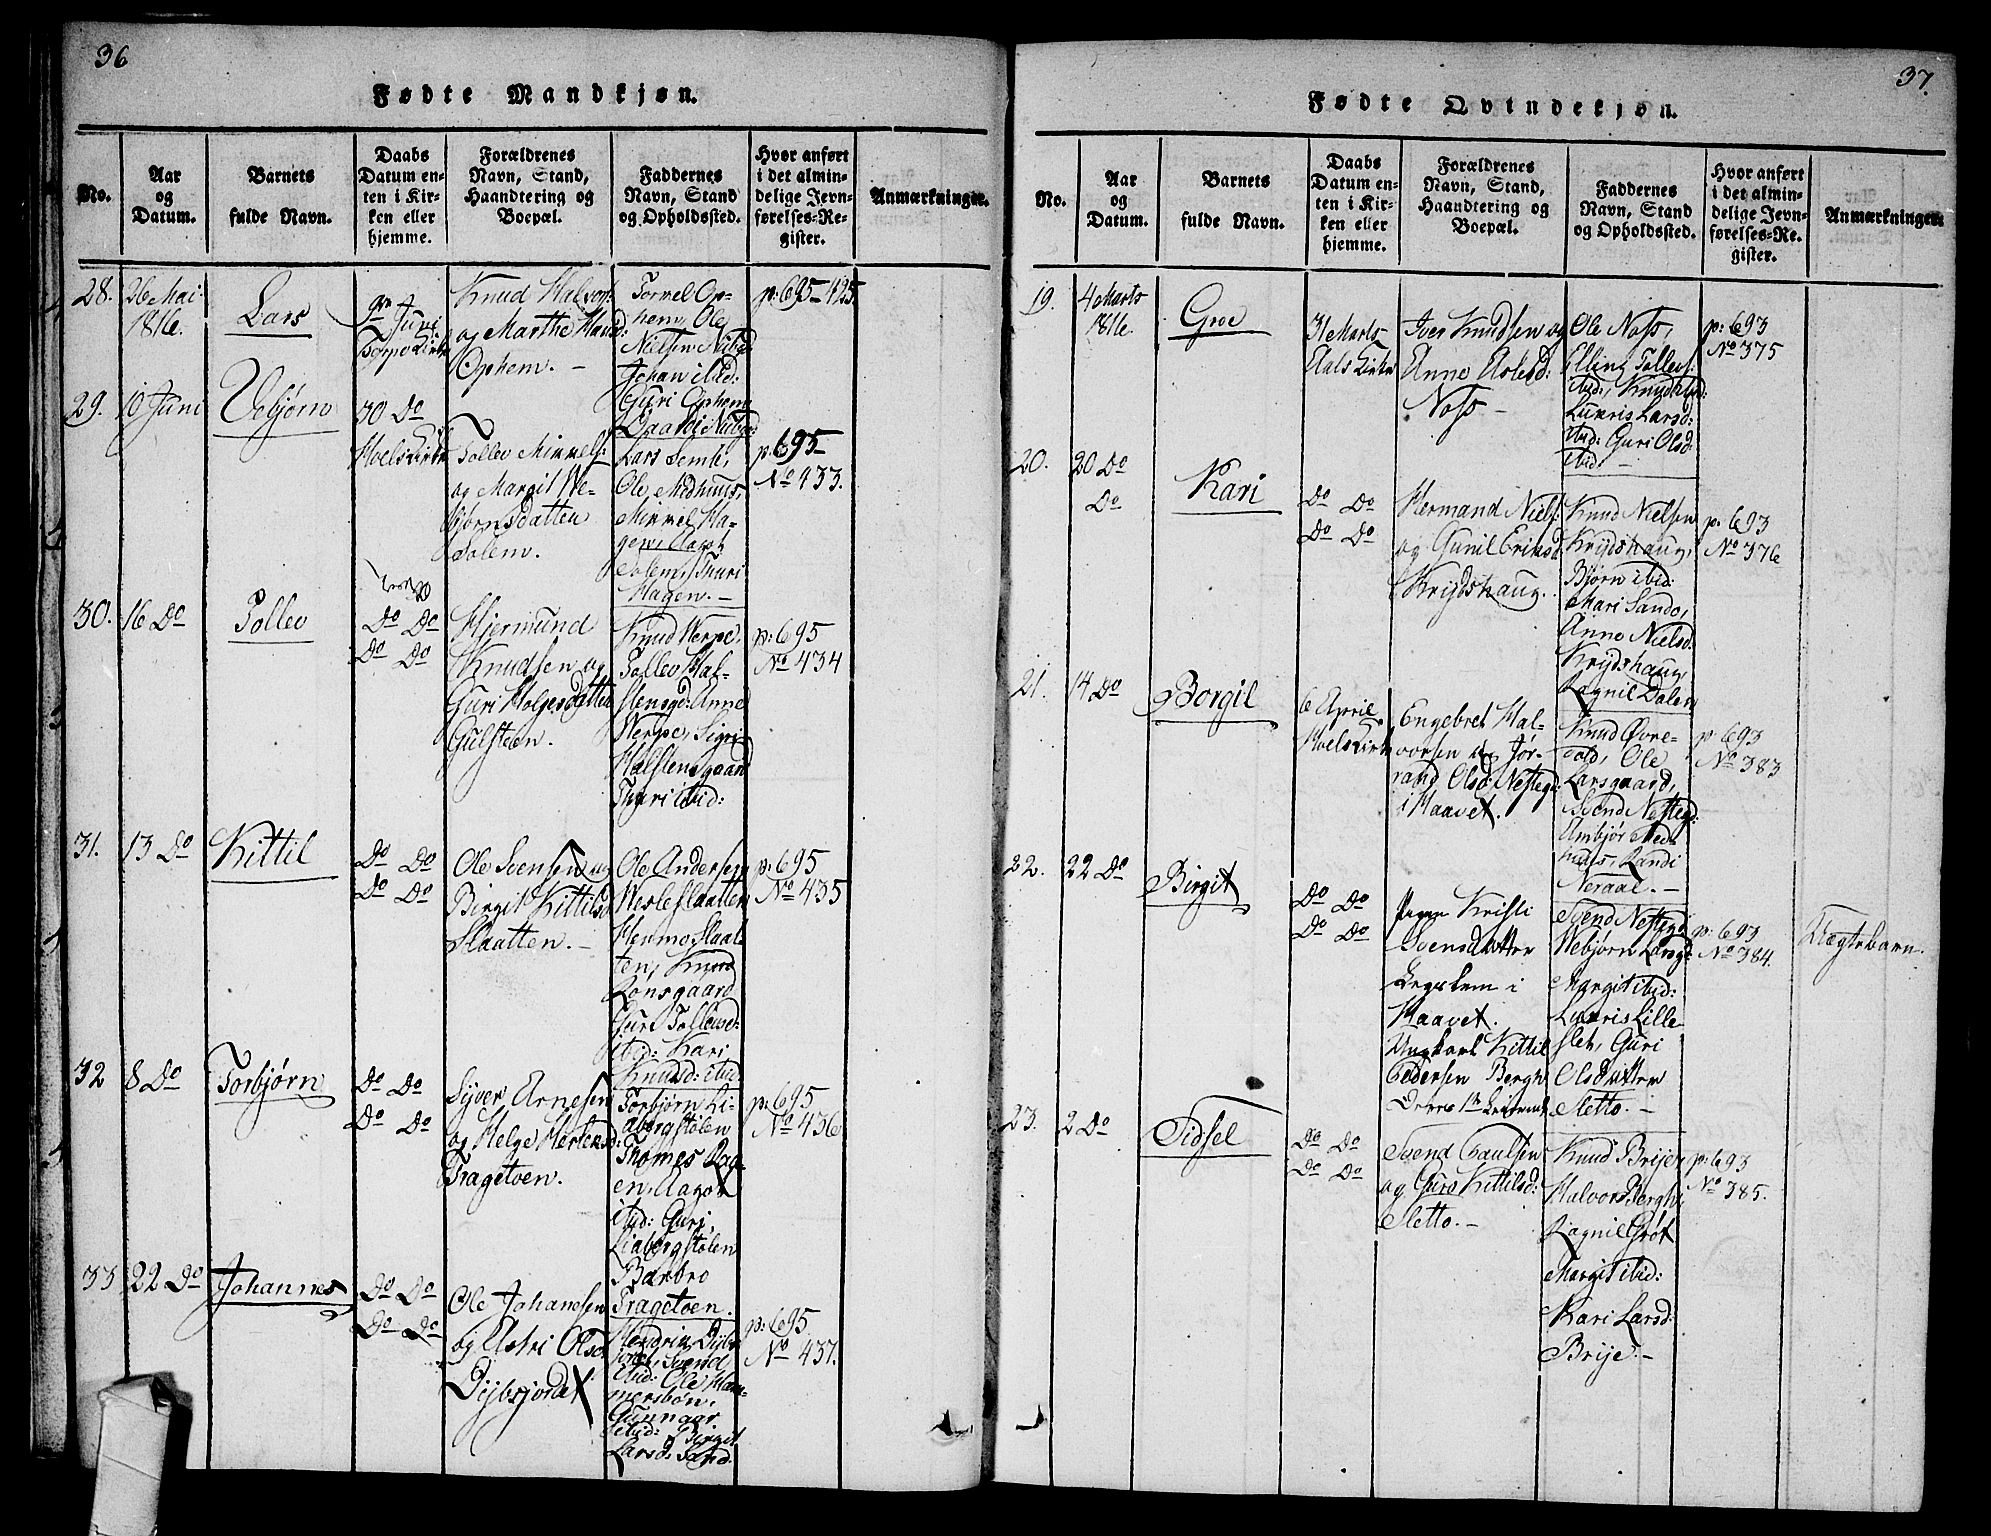 36
Fødte Mandkjøn.
No.
Aar
og
Datum.
Barnets
fulde Navn.
Daabs
Datum en-
ten i Kir-
ken eller
hjemme.
Forældrenes
Navn, Stand,
Haandtering og
Boepæl.
Faddernes
Navn, Stand
og Opholdssted.
Hvor anført
i det almin-
delige Jevn-
førelses-Re-
gister.
Anmærkninger.
28.
26 Mai
1816.
Lars
9de Juni
Knud Halvors:
og Marthe
Ophem. –
Tormel Op-
hem, Ole
Nielsen
Johan ibid:
Guri Ophem
p: 695–
29.
10 Juni
Vebjørn
30 Do
Hoels Kirke
Tollev Mimmels:
og Margit We-
bjørnsdatten
Solem.
Lars Semb,
Ole Medhuus,
Mimmel Ha-
gen, Aagot
Solem, Thuri
Hagen. –
p: 695–
No 433.
30.
16 Do
Tollev
Do Do
Do Do
Hjermund
Knudsen og
Guri Holgesdatten
Gulsteen.
Knud Werpe,
Tollev Hal-
stensgd: Anne
Werpe, Sigri
Halstensgaard
Thuri ibid:
p: 695
No 434
31.
13 Do
Kittil
Do Do
Do Do
Ole Svensen og
Birgit Kittilsd
Slaatten. –
Ole Andersen
Wesleslaatten
Hermo Slaat-
ten, Knud
Ronsgaard
Guri Tollevsd:
ibid: Kari
Knudsd: ibid
p: 695
No 435
32
8 Do
Torbjørn
Do Do
Do Do
Syver Arnesen
og Helge Hertensd:
Tragetoen.
Torbjørn Li-
abergstølen
Thomes Rag-
en, Aagot
ibid: Guri
Liabergstølen
Barbro
Tragetoen.
p: 695
No 436
33
22 Do
Johannes
Do Do
Do Do
Ole Johansen
og Astri Olsd
Dybsjordet
Svend
ibid: Ole Ham-
mersbøn,
Gunnaar
ibid: Birgit
Larsd: Sand.
p: 695
No 437.
37.
Fødte Qvindekjøn.
No.
Aar
og
Datum.
Barnets
fulde Navn.
Daabs
Datum en-
ten i Kir-
ken eller
hjemme.
Forældrenes
Navn, Stand,
Haandtering og
Boepæl.
Faddernes
Navn, Stand
og Opholdssted.
Hvor anført
i det almin-
delige Jevn-
førelses-Re-
gister.
Anmærkninger.
19.
4 Marts
1816.
Groe
31 Marts
Aals Kirke
Iver Knudsen og
Anne Aslesd:
Noss –
Ole Noss,
Elling Tollevs:
ibid:, Knud ibid:
Luxris Larsd:
ibid: Guri Olsd:
ibid –
p: 693
No 375
20.
20 Do
Do
Kari
Do Do
Do Do
Hermand Niels:
og Gunil Eriksd
Krydshaug.
Knud Nielsen
Krydshaug,
Bjørn ibid:
Mari Sando,
Anne Nielsd:
Krydshaug,
Ragnil Dalen
p: 693
No 376
21.
14 Do
Borgil
6 April
Hoels Kirke
Engebret Hal-
vorsen og Jør-
rand Olsd: Nestegd:
i Haavet.
Knud Øvre-
vold, Ole
Larsgaard,
Svend Nestegd:
Ambjør Med-
huus, Randi
Neraal. –
p: 693
No 383
22.
22 Do
Birgit
Do Do
Do Do
Pigen Kristi
Svensdatter
Legrlem i
Haavet.
Ungkarl Kittil
Pedersen Bergh
Svend Nestegd
Webjørn Larsgd:
Margit ibid:
Luxris Lille-
slet, Guri
Olsdatter
Sletto. –
p: 693
No 384.
Uægtebarn.
23.
2 Do
Sidsel
Do Do
Do Do
Svend Paulsen
og Guro Kittilsd:
Sletto. –
Knud Brijen
Halvors Bergh:
Ragnil Grøt
Margit ibid:
Kari Larsd:
Brije. –
p: 693
No 385.